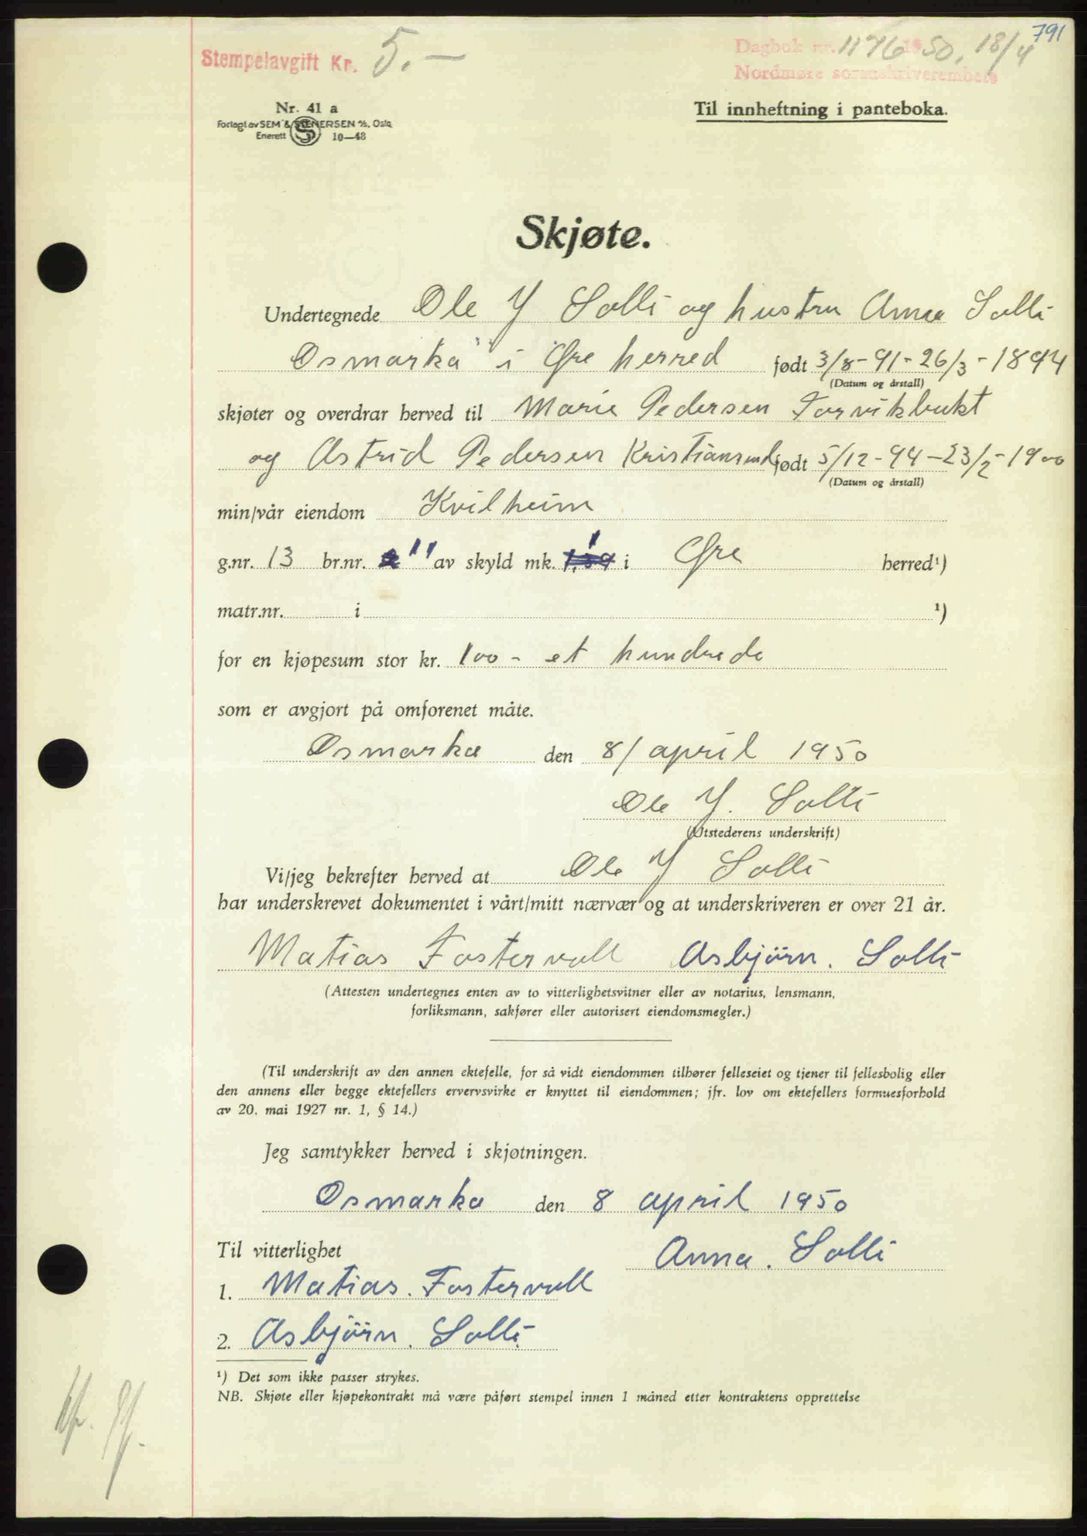 791
Stempelavgift Kr. 5.—
Dagbok nr. 1176 1950, 18/4
Nordmøre sorenskriverembete
Nr. 41 a
Forlagt av SEM & STENERSEN A/S, Oslo
Enerett S 10—48
Til innheftning i panteboka.
Skjøte.
Undertegnede Ole Y Solli og hustru Anna Solli
Osmarka i Øre herred født 3/8-91-26/3-1894
(Datum og årstall)
skjøter og overdrar herved til Marie Pedersen Torvikbukt
og Astrid Pedersen Kristiansund født 5/12-94-23/2-1900
(Datum og årstall)
min/vår eiendom Kvilheim
g.nr. 13 br.nr. 11 av skyld mk. 1 i Øre herred¹)
matr.nr. i ¹)
for en kjøpesum stor kr. 100 - et hundrede
som er avgjort på omforenet måte.
Osmarka den 8/ april 1950
Ole Y. Solli
(Utstederens underskrift)
Vi/jeg bekrefter herved at Ole Y Solli
har underskrevet dokumentet i vårt/mitt nærvær og at underskriveren er over 21 år.
Matias Fostervoll Asbjörn. Solli
(Attesten undertegnes enten av to vitterlighetsvitner eller av notarius, lensmann,
forliksmann, sakfører eller autorisert eiendomsmegler.)
(Til underskrift av den annen ektefelle, for så vidt eiendommen tilhører felleseiet og tjener til fellesbolig eller
den annens eller begge ektefellers ervervsvirke er knyttet til eiendommen; jfr. lov om ektefellers formuesforhold
av 20. mai 1927 nr. 1, § 14.)
Jeg samtykker herved i skjøtningen.
Osmarka den 8 april 1950
Til vitterlighet Anna. Solli
1. Matias. Fostervoll
2. Asbjörn. Solli
¹) Det som ikke passer strykes.
NB. Skjøte eller kjøpekontrakt må være påført stempel innen 1 måned etter kontraktens opprettelse